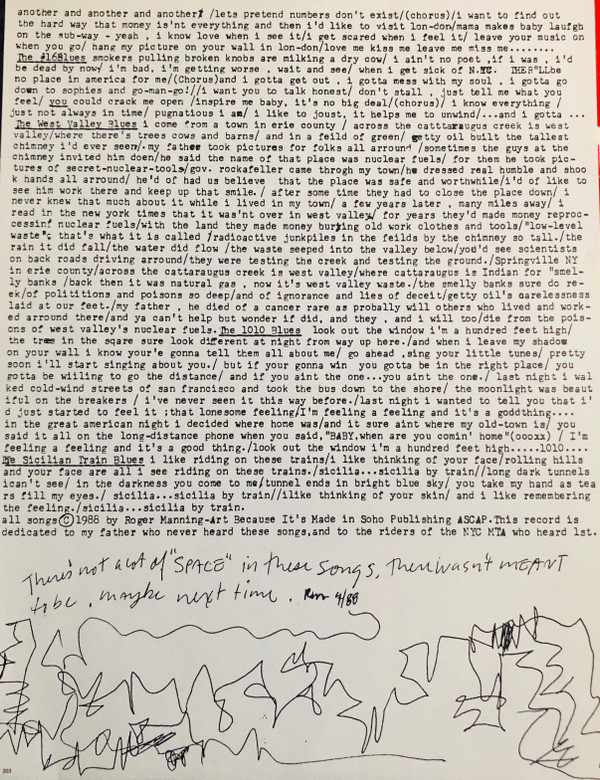 another and another and another! /lets pretend numbers don't exist/(chorus)/i want to find out
the hard way that money is'nt everything and then i'd like to visit lon-don/mama makes baby laufgh
on the sub-way - yeah , i know love when i see it/i get scared when i feel it/ leave your music on
when you go/ hang my picture on your wall in lon-don/love me kiss me leave me miss me........
The #16Blues smokers pulling broken knobs are milking a dry cow/ i ain't no poet ,if i was , i'd
be dead by now/ i'm bad, i'm getting worse , wait and see/ when i get sick of N.YC. THER"LLbe
no place in america for me/(Chorus)and i gotta get out , i gotta mess with my soul , i gotta go
down to sophies and go-man-go!//i want you to talk honest/ don't stall , just tell me what you
feel/ you could crack me open /inspire me baby, it's no big deal/(chorus)/ i know everything /
just not always in time/ pugnatious i am/ i like to joust, it helps me to unwind/...and i gotta ...
The West Valley Blues i come from a town in erie county / across the cattaraugus creek is west
valley/where there's trees cows and barns/ and in a feild of green/ getty oil built the tallest
chimney i'd ever seen/. my father took pictures for folks all arround /sometimes the guys at the
chimney invited him doen/he said the name of that place was nuclear fuels/ for them he took pic-
tures of secret-nuclear-tools/gov. rockafeller came throgh my town/he dressed real humble and shoo
k hands all arround/ he'd of had us believe that the place was safe and worthwhile/i'd of like to
see him work there and keep up that smile./ after some time they had to close the place down/ i
never knew that much about it while i lived in my town/ a few years later , many miles away/ i
read in the new york times that it was'nt over in west valley/ for years they'd made money reproc-
cessinf nuclear fuels/with the land they made money burying old work clothes and tools/"low-level
waste"; that's what it is called /radioactive junkpiles in the feilds by the chimney so tall./the
rain it did fall/the water did flow /the waste seeped into the valley below/you'd see scientists
on back roads driving arround/they were testing the creek and testing the ground./Springville NY
in erie county/across the cattaraugus creek is west valley/where cattaraugus is Indian for "smel-
ly banks /back then it was natural gas , now it's west valley waste./the smelly banks sure do re-
ek/of polititions and poisons so deep/and of ignorance and lies of deceit/getty oil's carelessness
laid at our feet./my father , he died of a cancer rare as probally will others who lived and work-
ed arround there/and ya can't help but wonder if did, and they , and i will too/die from the pois-
ons of west valley's nuclear fuels. The 1010 Blues look out the window i'm a hundred feet high/
the tres in the sqare sure look different at night from way up here./and when i leave my shadow
on your wall i know your'e gonna tell them all about me/ go ahead ,sing your little tunes/ pretty
soon i'll start singing about you./ but if your gonna win you gotta be in the right place/ you
gotta be willing to go the distance/ and if you aint the one...you aint the one./ last night i wal
ked cold-wind streets of san francisco and took the bus down to the shore/ the moonlight was beaut
iful on the breakers / i've never seen it this way before./last night i wanted to tell you that i'
d just started to feel it ;that lonesome feeling/I'm feeling a feeling and it's a goddthing....
in the great american night i decided where home was/and it sure aint where my old-town is/ you
said it all on the long-distance phone when you said,"BABY,when are you comin' home"(oooxx) / I'm
feeling a feeling and it's a good thing./look out the window i'm a hundred feet high.....1010....
The Sicilian Train Blues i like riding on these trains/i like thinking of your face/rolling hills
and your face are all i see riding on these trains./sicilia...sicilia by train//long dark tunnels
ican't see/ in the darkness you come to me/tunnel ends in bright blue sky/ you take my hand as tea
rs fill my eyes./ sicilia...sicilia by train//ilike thinking of your skin/ and i like remembering
the feeling./sicilia...sicilia by train.
all songs©1988 by Roger Manning-Art Because It's Made in Soho Publishing ASCAP.This record is
dedicated to my father who never heard these songs,and to the riders of the NYC MTA who heard 1st.
There's not a lot of "SPACE" in these songs, There wasn't MEANT
to be, maybe next time. Rm 4/88
203